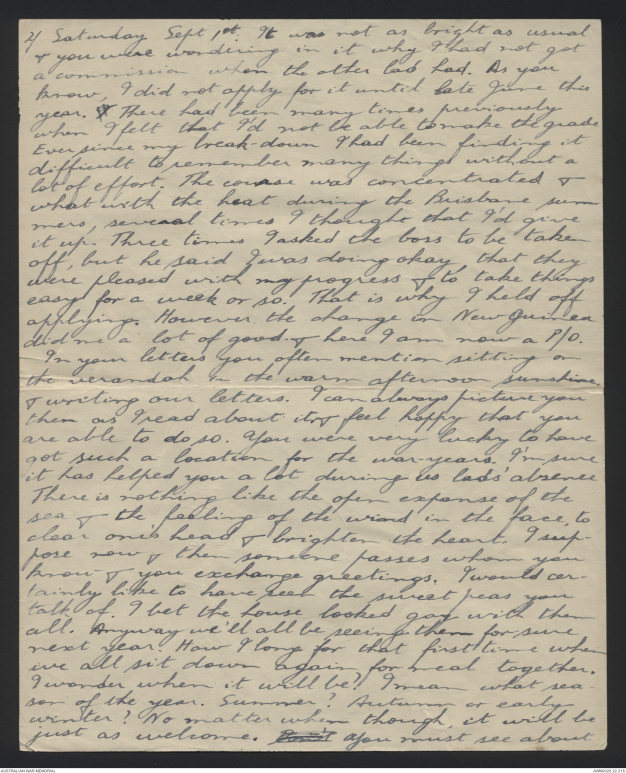 4/ Saturday Sept 1st. It was not as bright as usual
& you were wondering in it why I had not got
a commission when the other lad had. As you
know, I did not apply for it until late June this
year. & There had been many times previously
when I felt that I'd not be able to make the grade
Ever since my break-down I had been finding it
difficult to remember many things without a
lot of effort. The course was concentrated &
what with the heat during the Brisbane sum
mers, several times I thought that I'd give
it up. Three times I asked the boss to be taken
off, but he said I was doing okay that they
were pleased with my progress & to take things
easy for a week or so. That is why I held off
applying. However the change in New Guinea
did me a lot of good & here I am now a P/O.
In your letters you often mention sitting on
the verandah in the warm afternoon sunshine
& writing our letters. I can always picture you
then as I read about it & feel happy that you
are able to do so. You were very lucky to have
got such a location for the war-years. I'm sure
it has helped you a lot during us lads' absence
There is nothing like the open expanse of the
sea & the feeling of the wind in the face, to
clear one's head & brighten the heart. I sup-
pose now & then someone passes whom you
know & you exchange greetings. I would cer-
tainly like to have seen the sweet peas you
talk of. I bet the house looked gay with them
all. Anyway we'll all be seeing them for sure
next year! How I long for that first time when
we all sit down again for meal together.
I wonder when it will be? I mean what sea-
son of the year. Summer? Autumn or early
winter? No matter when though, it will be
just as welcome. You must see about
AUSTRALIAN WAR MEMORIAL